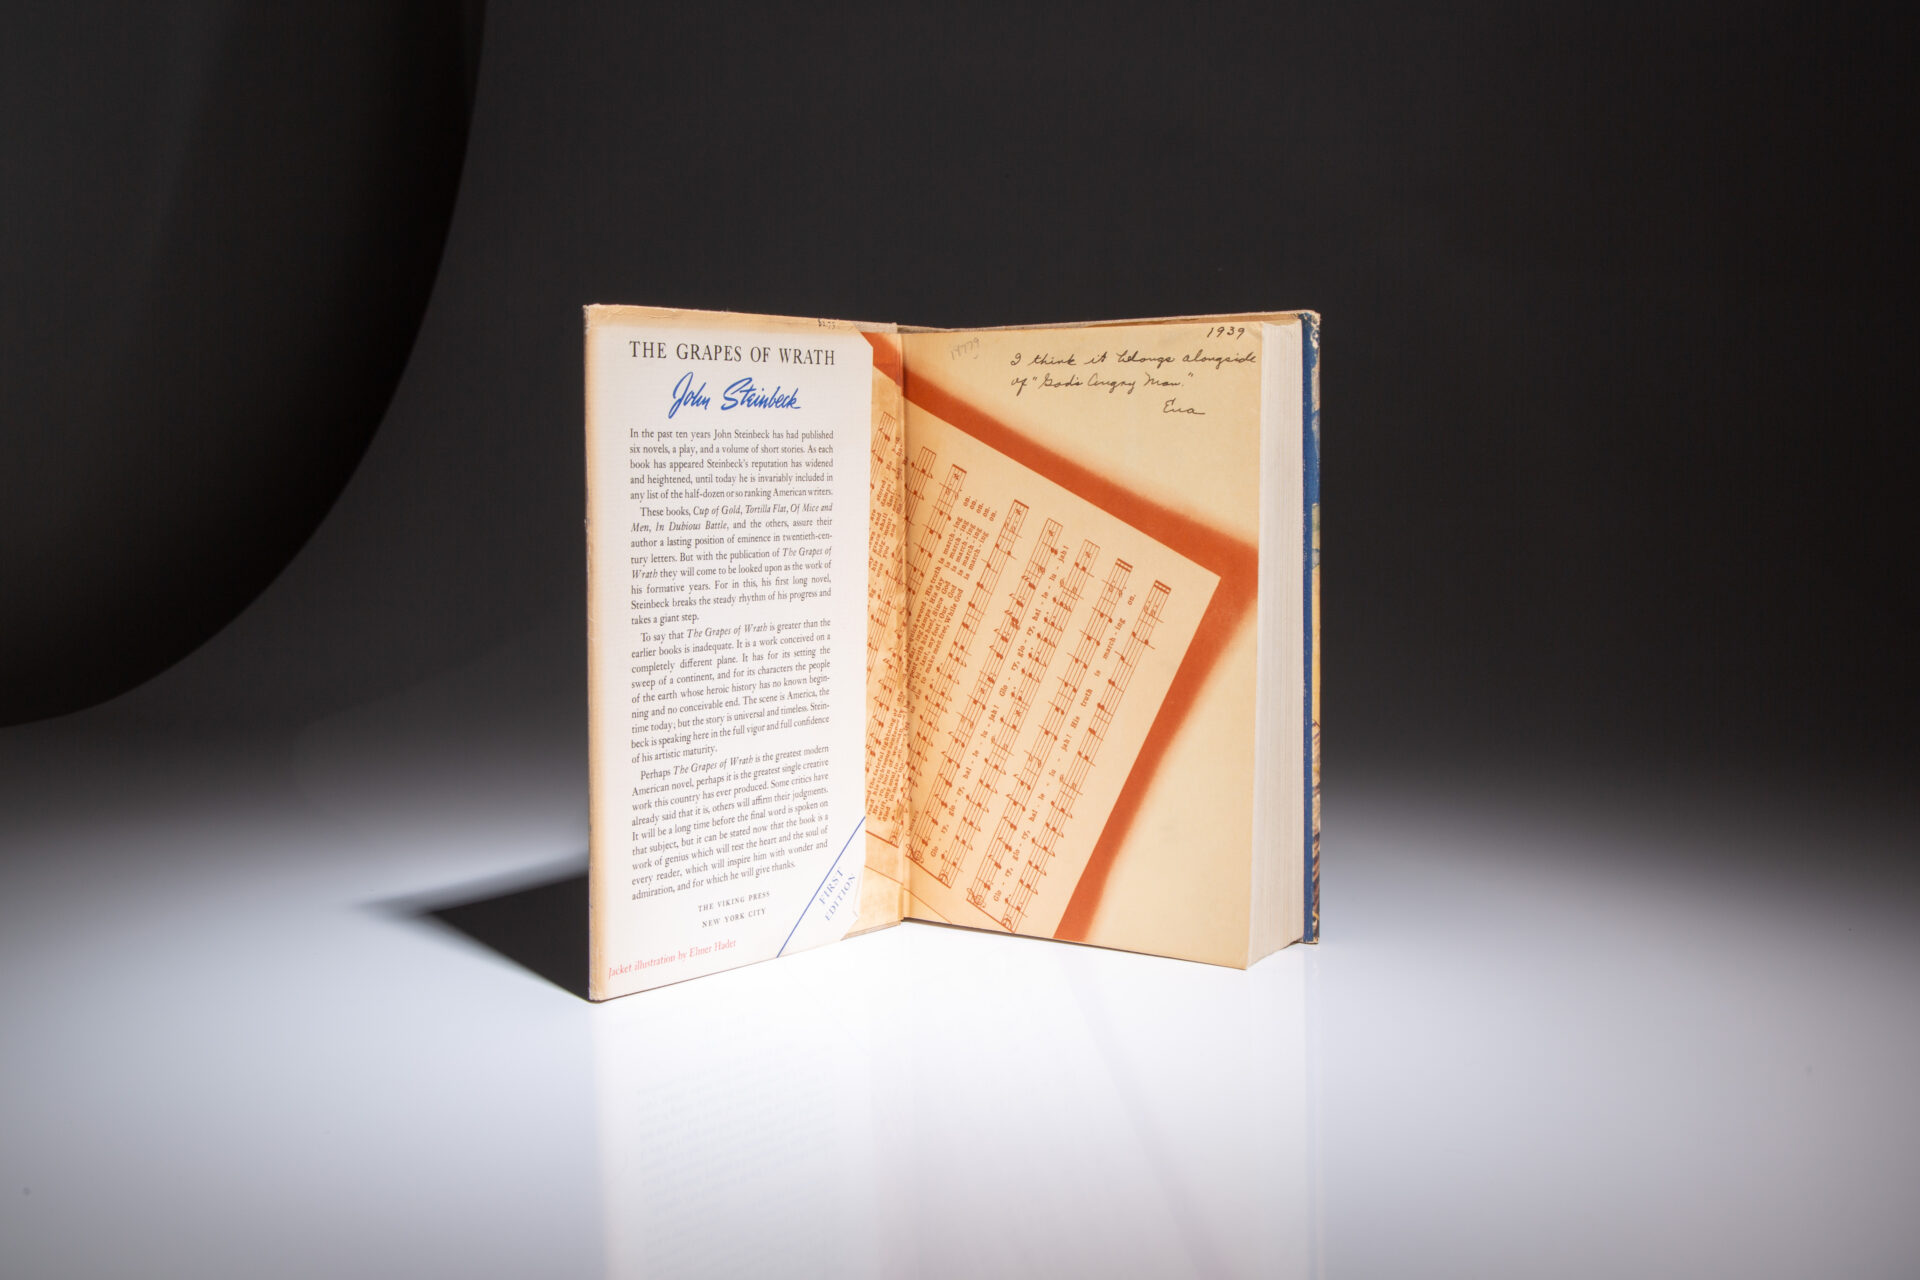 $2.75
THE GRAPES OF WRATH
John Steinbeck
In the past ten years John Steinbeck has had published
six novels, a play, and a volume of short stories. As each
book has appeared Steinbeck's reputation has widened
and heightened, until today he is invariably included in
any list of the half-dozen or so ranking American writers.
These books, Cup of Gold, Tortilla Flat, Of Mice and
Men, In Dubious Battle, and the others, assure their
author a lasting position of eminence in twentieth-cen-
tury letters. But with the publication of The Grapes of
Wrath they will come to be looked upon as the work of
his formative years. For in this, his first long novel,
Steinbeck breaks the steady rhythm of his progress and
takes a giant step.
To say that The Grapes of Wrath is greater than the
earlier books is inadequate. It is a work conceived on a
completely different plane. It has for its setting the
sweep of a continent, and for its characters the people
of the earth whose heroic history has no known begin-
ning and no conceivable end. The scene is America, the
time today; but the story is universal and timeless. Stein-
beck is speaking here in the full vigor and full confidence
of his artistic maturity.
Perhaps The Grapes of Wrath is the greatest modern
American novel, perhaps it is the greatest single creative
work this country has ever produced. Some critics have
already said that it is, others will affirm their judgments.
It will be a long time before the final word is spoken on
that subject, but it can be stated now that the book is a
work of genius which will test the heart and the soul of
every reader, which will inspire him with wonder and
admiration, and for which he will give thanks.
THE VIKING PRESS
NEW YORK CITY
FIRST
EDITION
Jacket illustration by Elmer Hader
1939
I think it belongs alongside
of "God's Angry Man."
Eva
is march - ing on.
is march - ing on.
is march - ing on.
is march - ing on.
Glo - ry, glo - ry, hal - le - lu - jah! Glo - ry, glo - ry, hal - le - lu - jah!
Glo - ry, glo - ry, hal - le - lu - jah! His truth is march - ing on.